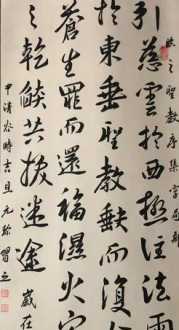 之聖教序集字
引慈雲於西極注法雨
於東垂聖教缺而復
蒼生罪而還福濕火宅
之乾燄共拔迷途 歲在
甲清 時吉旦元